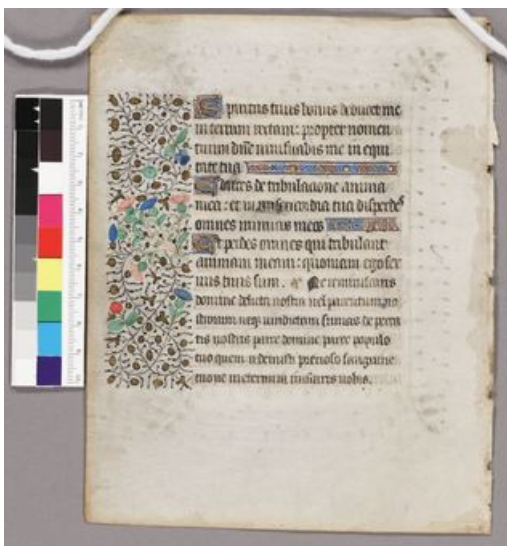 Spiritus tuus bonus deducet me
in terram rectam: propter nomen
tuum dñe vivificabis me in equi
tate tua
Educes de tribulacione anima
mea: et in misericordia tua disperdes
omnes inimicos meos
Et perdes omnes qui tribulant
animam meam: quoniam ego ser
vus tuus sum. a Ne reminiscaris
domine delicta nostra vel parentum nro
strorum neqz vindictam sumas de pecca
tis nostris parce domine parce populo
tuo quem redemisti precioso sanguine
tuo ne in eternum irascaris nobis.